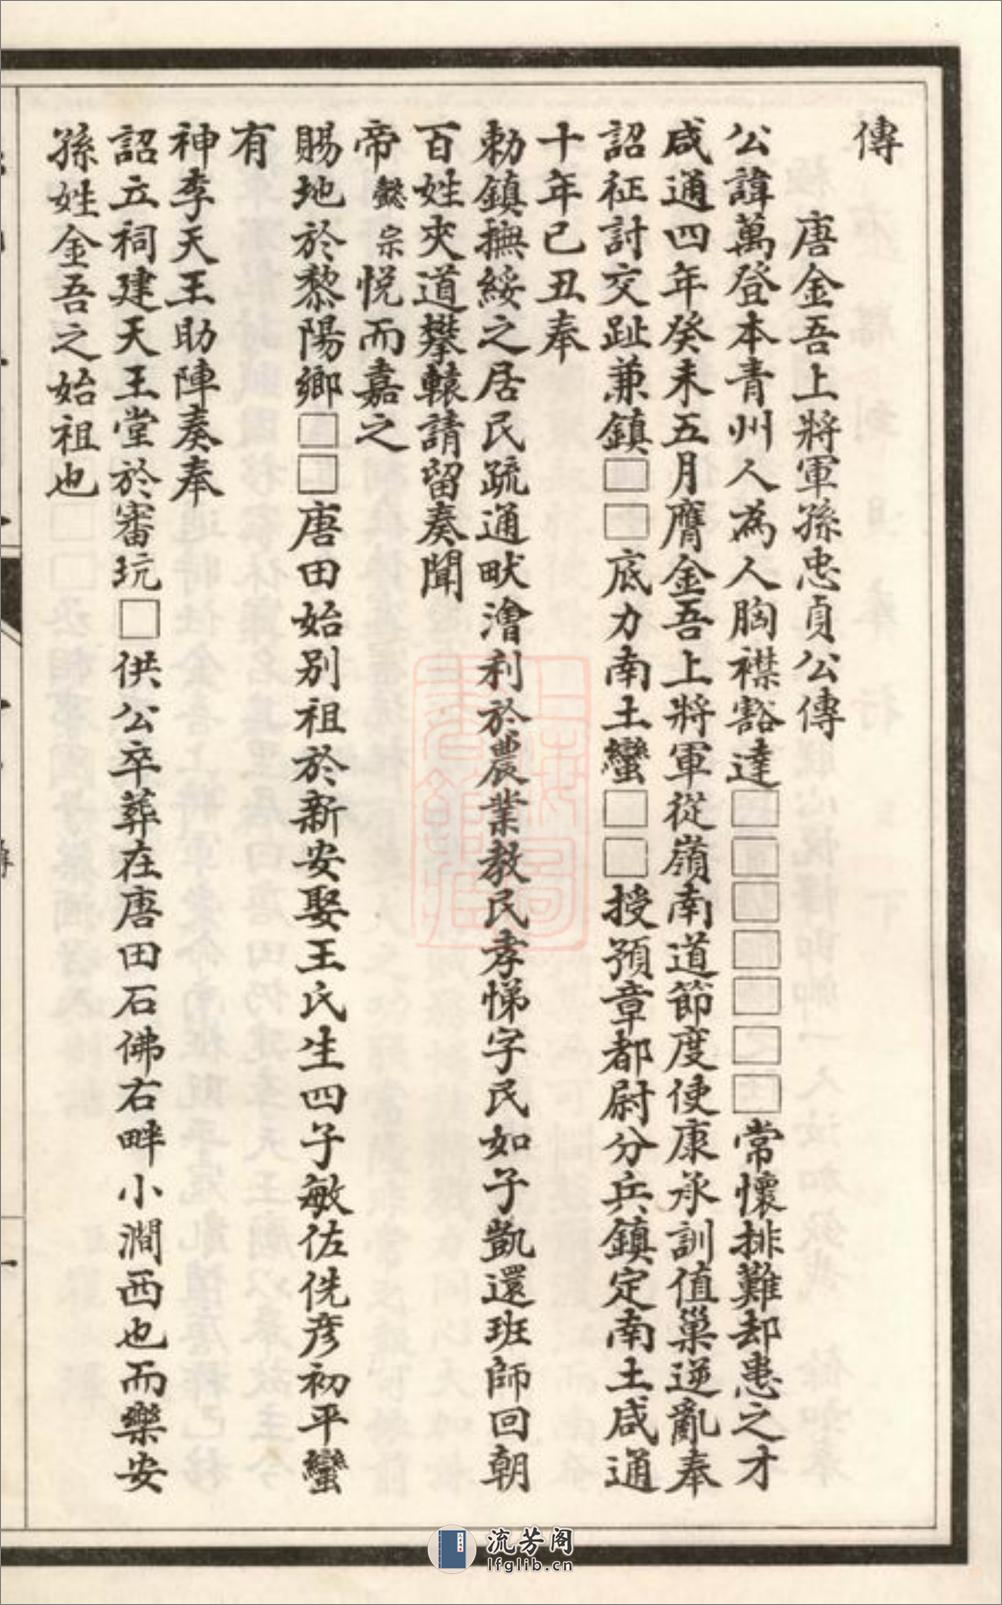 傳
唐金吾上將軍孫忠貞公傳
公諱萬登本青州人為人胸襟豁達□□□□□□□常懷排難却患之才
咸通四年癸未五月膺金吾上將軍從嶺南道節度使康承訓值巢逆亂奉
詔征討交趾兼鎮□□底力南土蠻□□授預章都尉分兵鎮定南土咸通
十年己丑奉
勅鎮撫綏之居民疏通畎澮利於農業教民孝悌字民如子凱還班師回朝
百姓夾道攀轅請留奏聞
帝懿宗悅而嘉之
賜地於黎陽鄉□□唐田始別祖於新安娶王氏生四子敏佐侁彦初平蠻
有
神李天王助陣奏奉
詔立祠建天王堂於審坑□供公卒葬在唐田石佛右畔小澗西也而樂安
孫姓金吾之始祖也
流芳阁
lfglib.cn